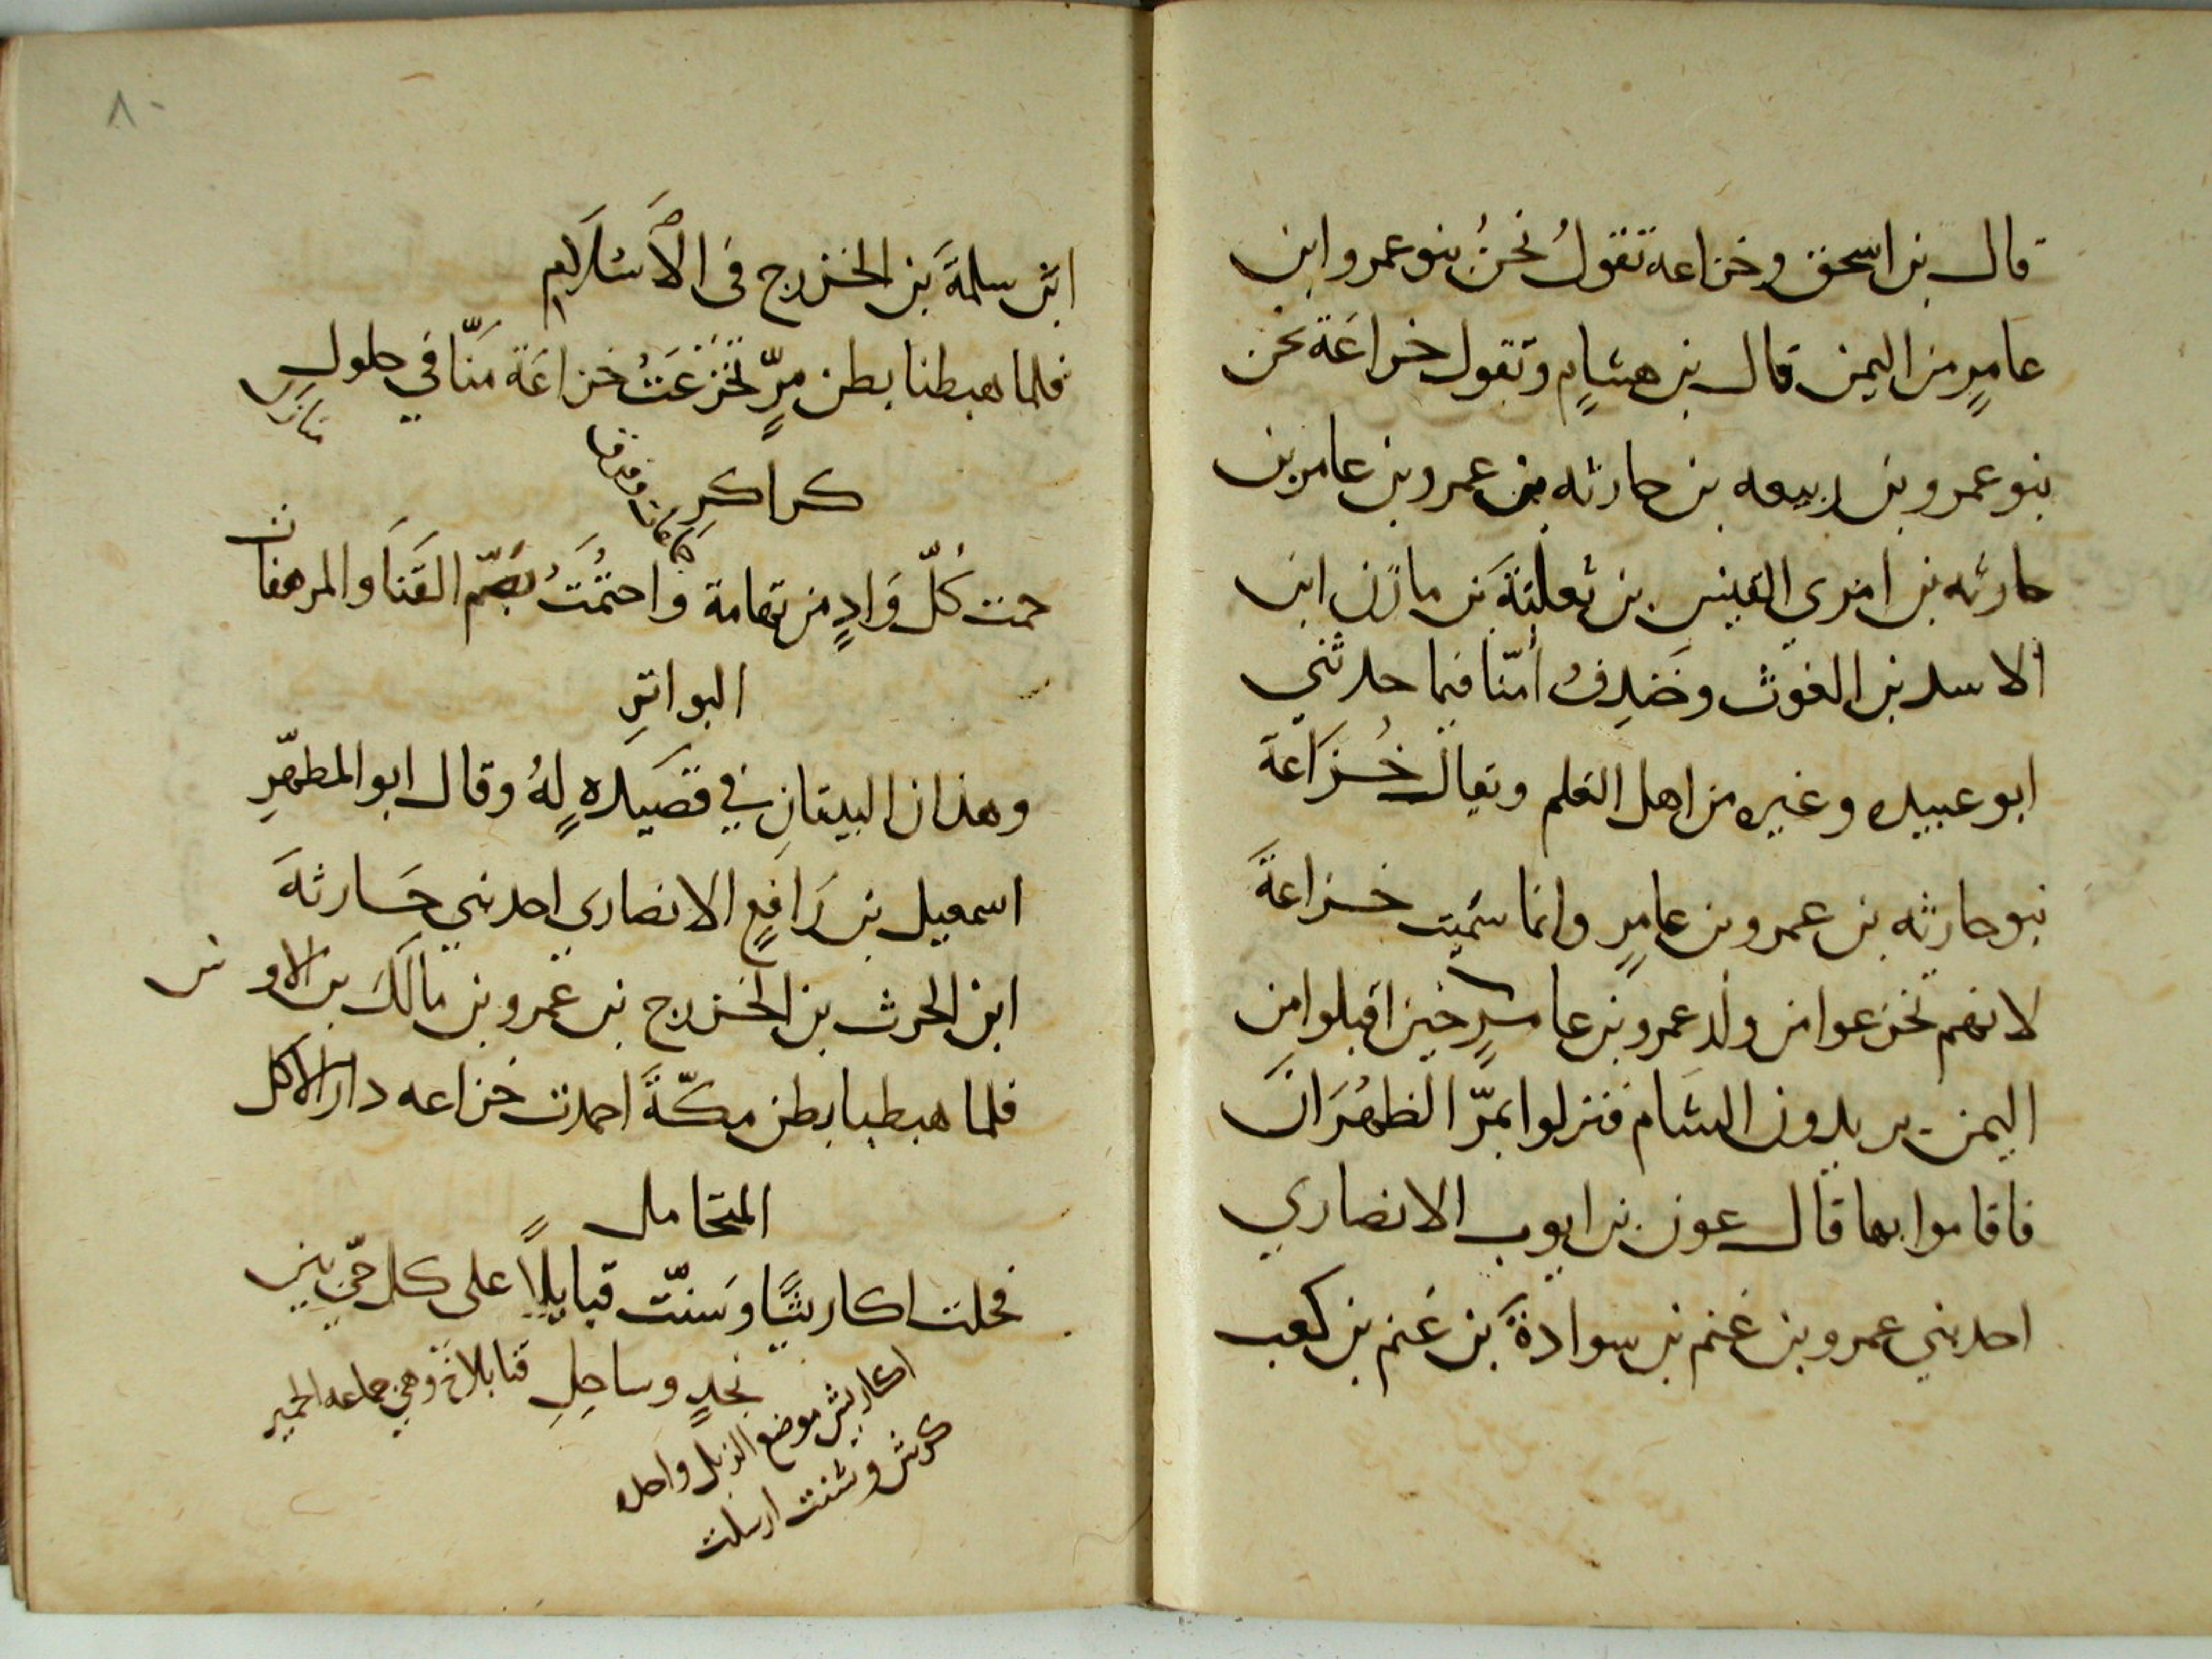 قال بن اسحق وخزاعة تقولُ نحنُ بنو عمرو ابن
عامرٍ من اليمن قال بن هشامٍ وتقول خزاعَة نحن
بنو عمرو بن ربيعه بن حارثه بن عمرو بن عامر بن
حارثه بن امرى القيس بن ثعلبَةَ بن مازن ابن
الاسد بن الغوث وخندِفُ أمّنا فيما حدثني
ابو عبيده وغيره من اهل العلم ويقال خُزَاعَة
بنو حارثه بن عمرو بن عامرٍ وانما سُمّيت خزاعةَ
لانهم تخزعوا من ولد عمرو بن عامرٍ حين اقبلوا من
اليمن يريدون الشام فنزلوا بمرّ الظهْرَان
فاقاموا بها قال عون بن ايوب الانصاري
احد بني عمرو بن غنم بن سوادةَ بن غنم بن كعب
٨٠
ابن سلمةَ بن الخزرج في الاسْلَام
فلما هبطنا بطن مرٍّ تخزعَتْ خزاعَة منّا في حلول
كراكرِ
حمت كُلّ وَادٍ من تهامة واحتمَتْ بصُمّ القَنَا والمرهفات
البواترِ
وهذان البيتانِ في قصيدهٍ لهُ وقال ابو المطهّرِ
اسمعيل بن رَافعٍ الانصاري احد بني حَارثةَ
ابن الحرث بن الخزرج بن عمرو بن مالك بن الاوس
فلما هبطنا بطن مكّةَ احمدت خزاعه دار الاكل
المتحامل
فحلت اكاريشًا وَسنتّ قبايلاً على كل حيّ بين
نجدٍ وساحِلِ
قنابلا خ وهي جماعه الخير
اكاريش موضع الذبل واحده
كرش وشنت ارسلت